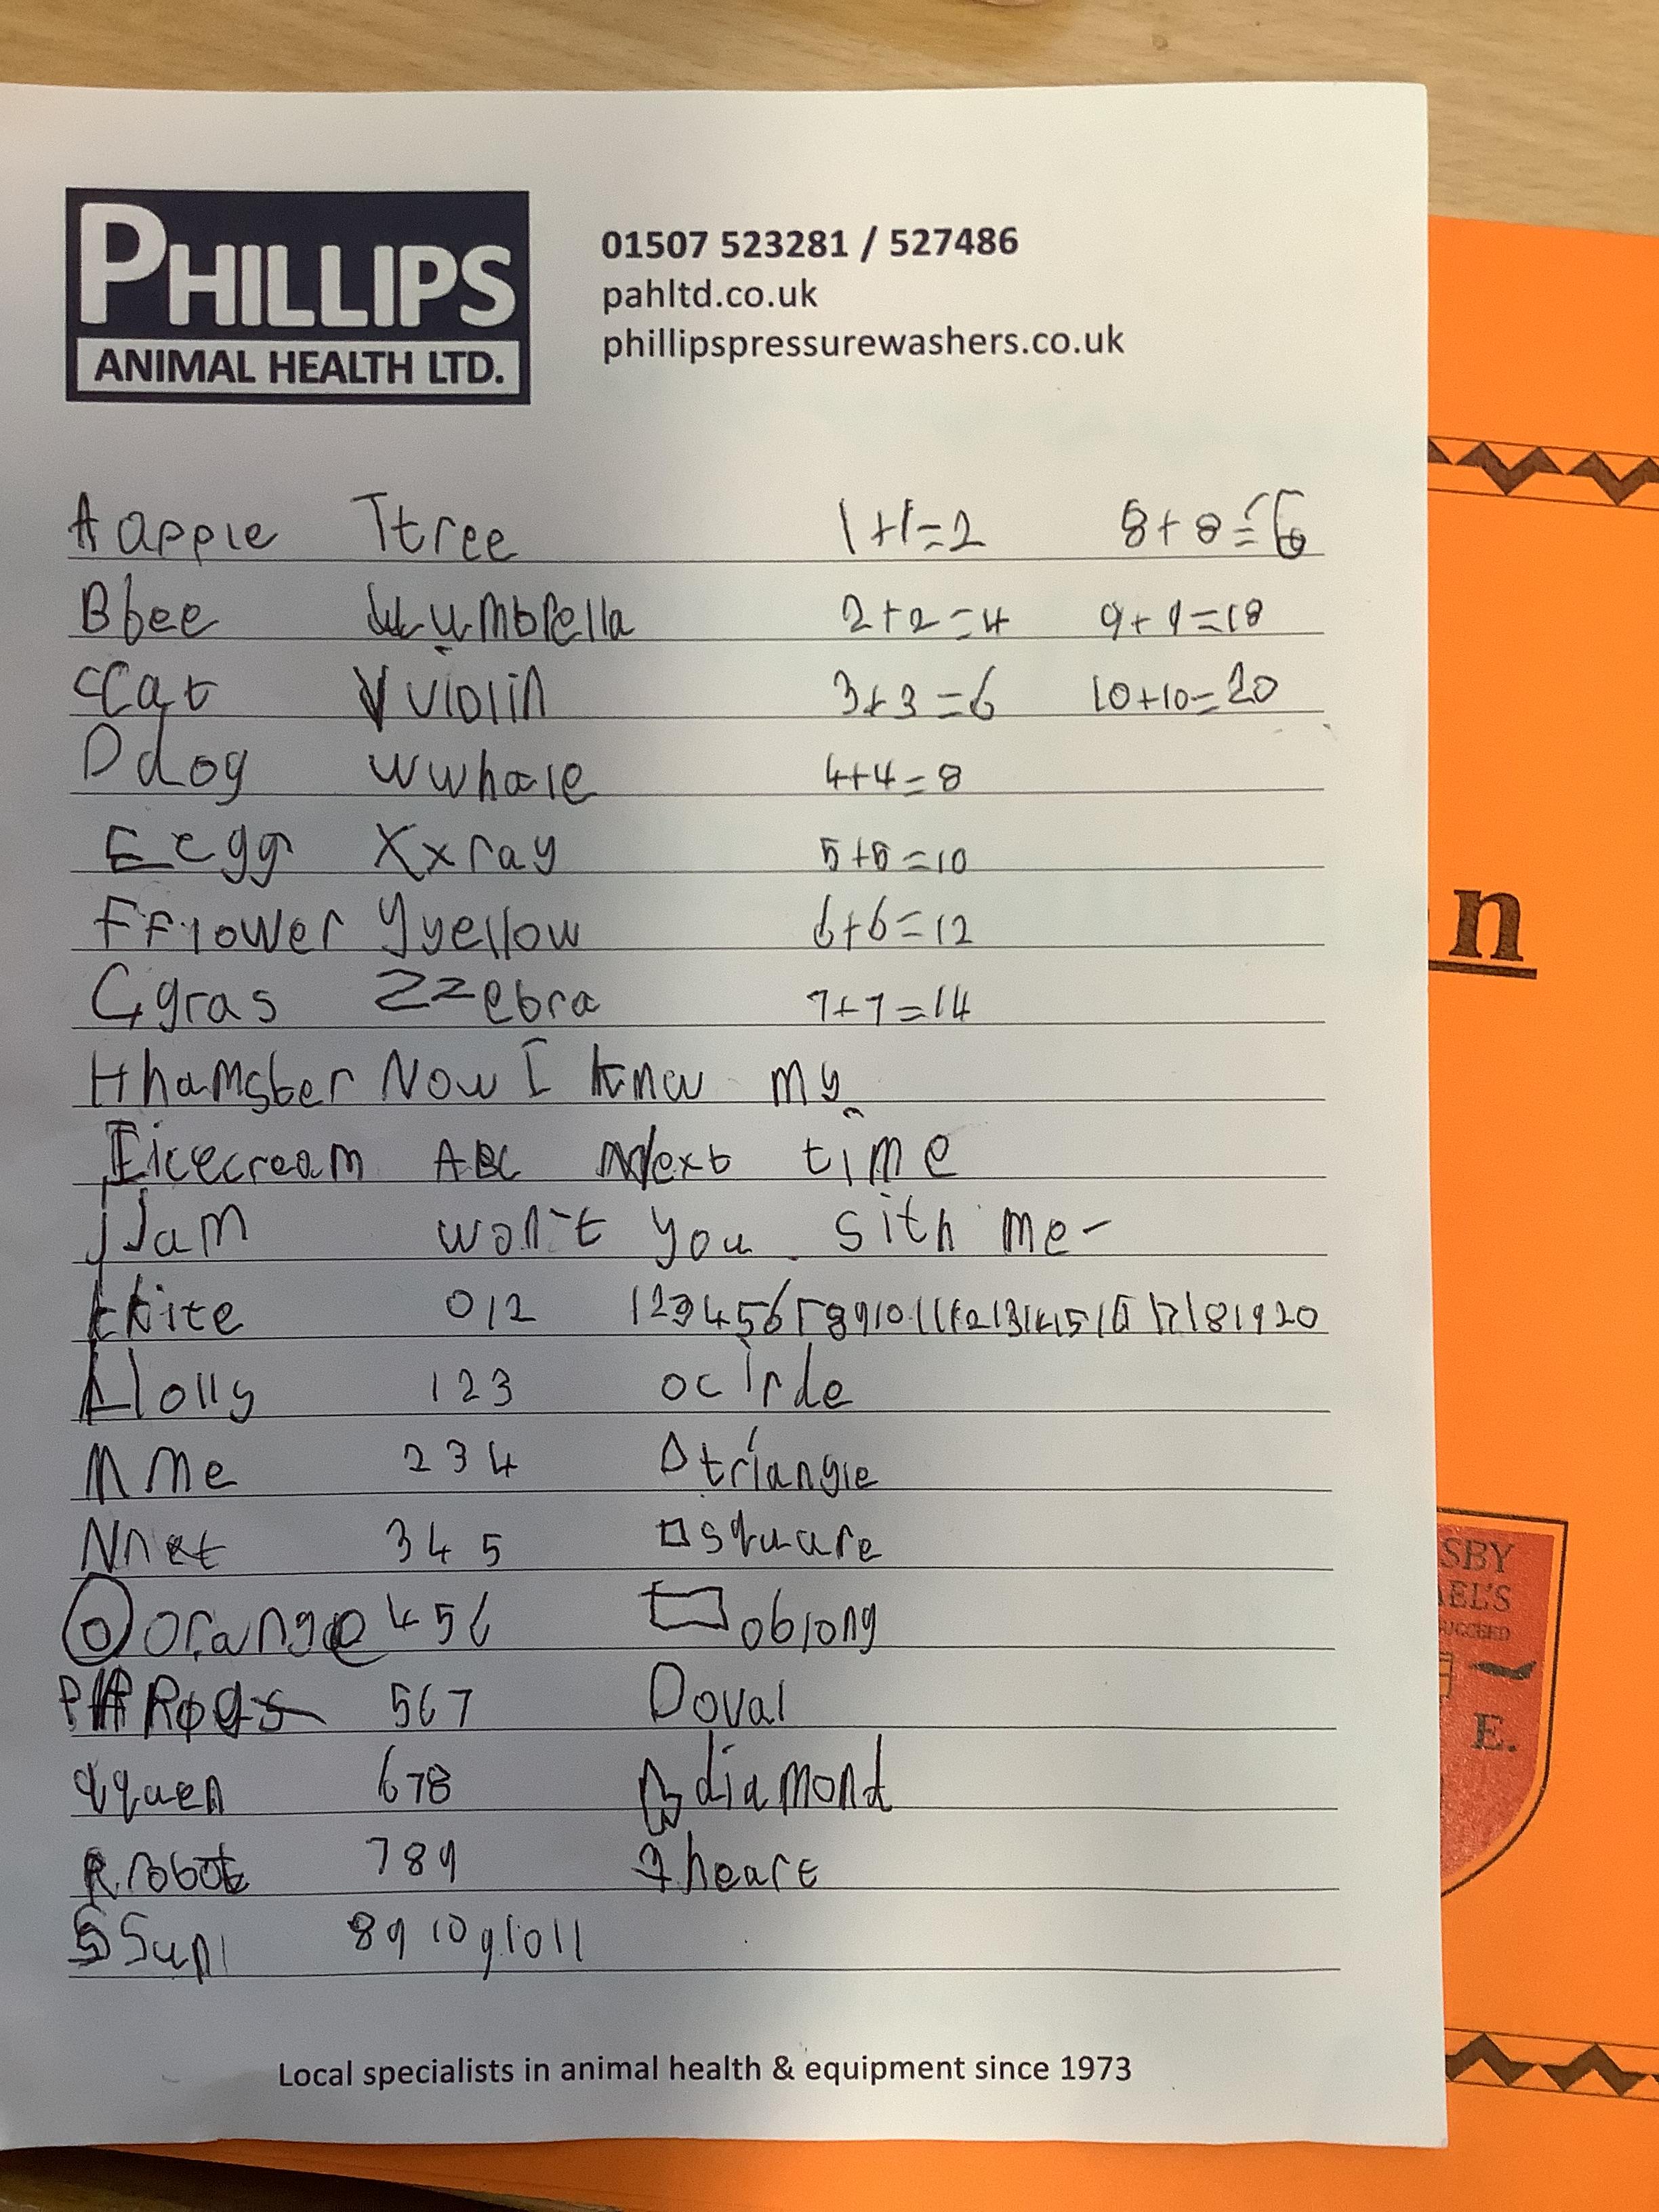 PHILLIPS
ANIMAL HEALTH LTD.
01507 523281 / 527486
pahltd.co.uk
phillipspressurewashers.co.uk
A apple T tree 1+1=2 8+8=16
B bee u umbrella 2+2=4 9+9=18
c Cat V violin 3+3=6 10+10=20
D dog w whale 4+4=8
E egg X xray 5+5=10
F Flower y yellow 6+6=12
G gras Z zebra 7+7=14
H hamster Now I knw my
I icecream ABC Next time
j Jam won't you sith me
k kite 012 1234567891011121314151617181920
lolly 123 o cirlde
M Me 234 triangle
N net 345 square
O orange 456 oblong
P 567 oval
q quen 678 diamond
R robot 789 heart
S Sun 8910 91011
n
SBY
EL'S
UCCEED
E.
Local specialists in animal health & equipment since 1973